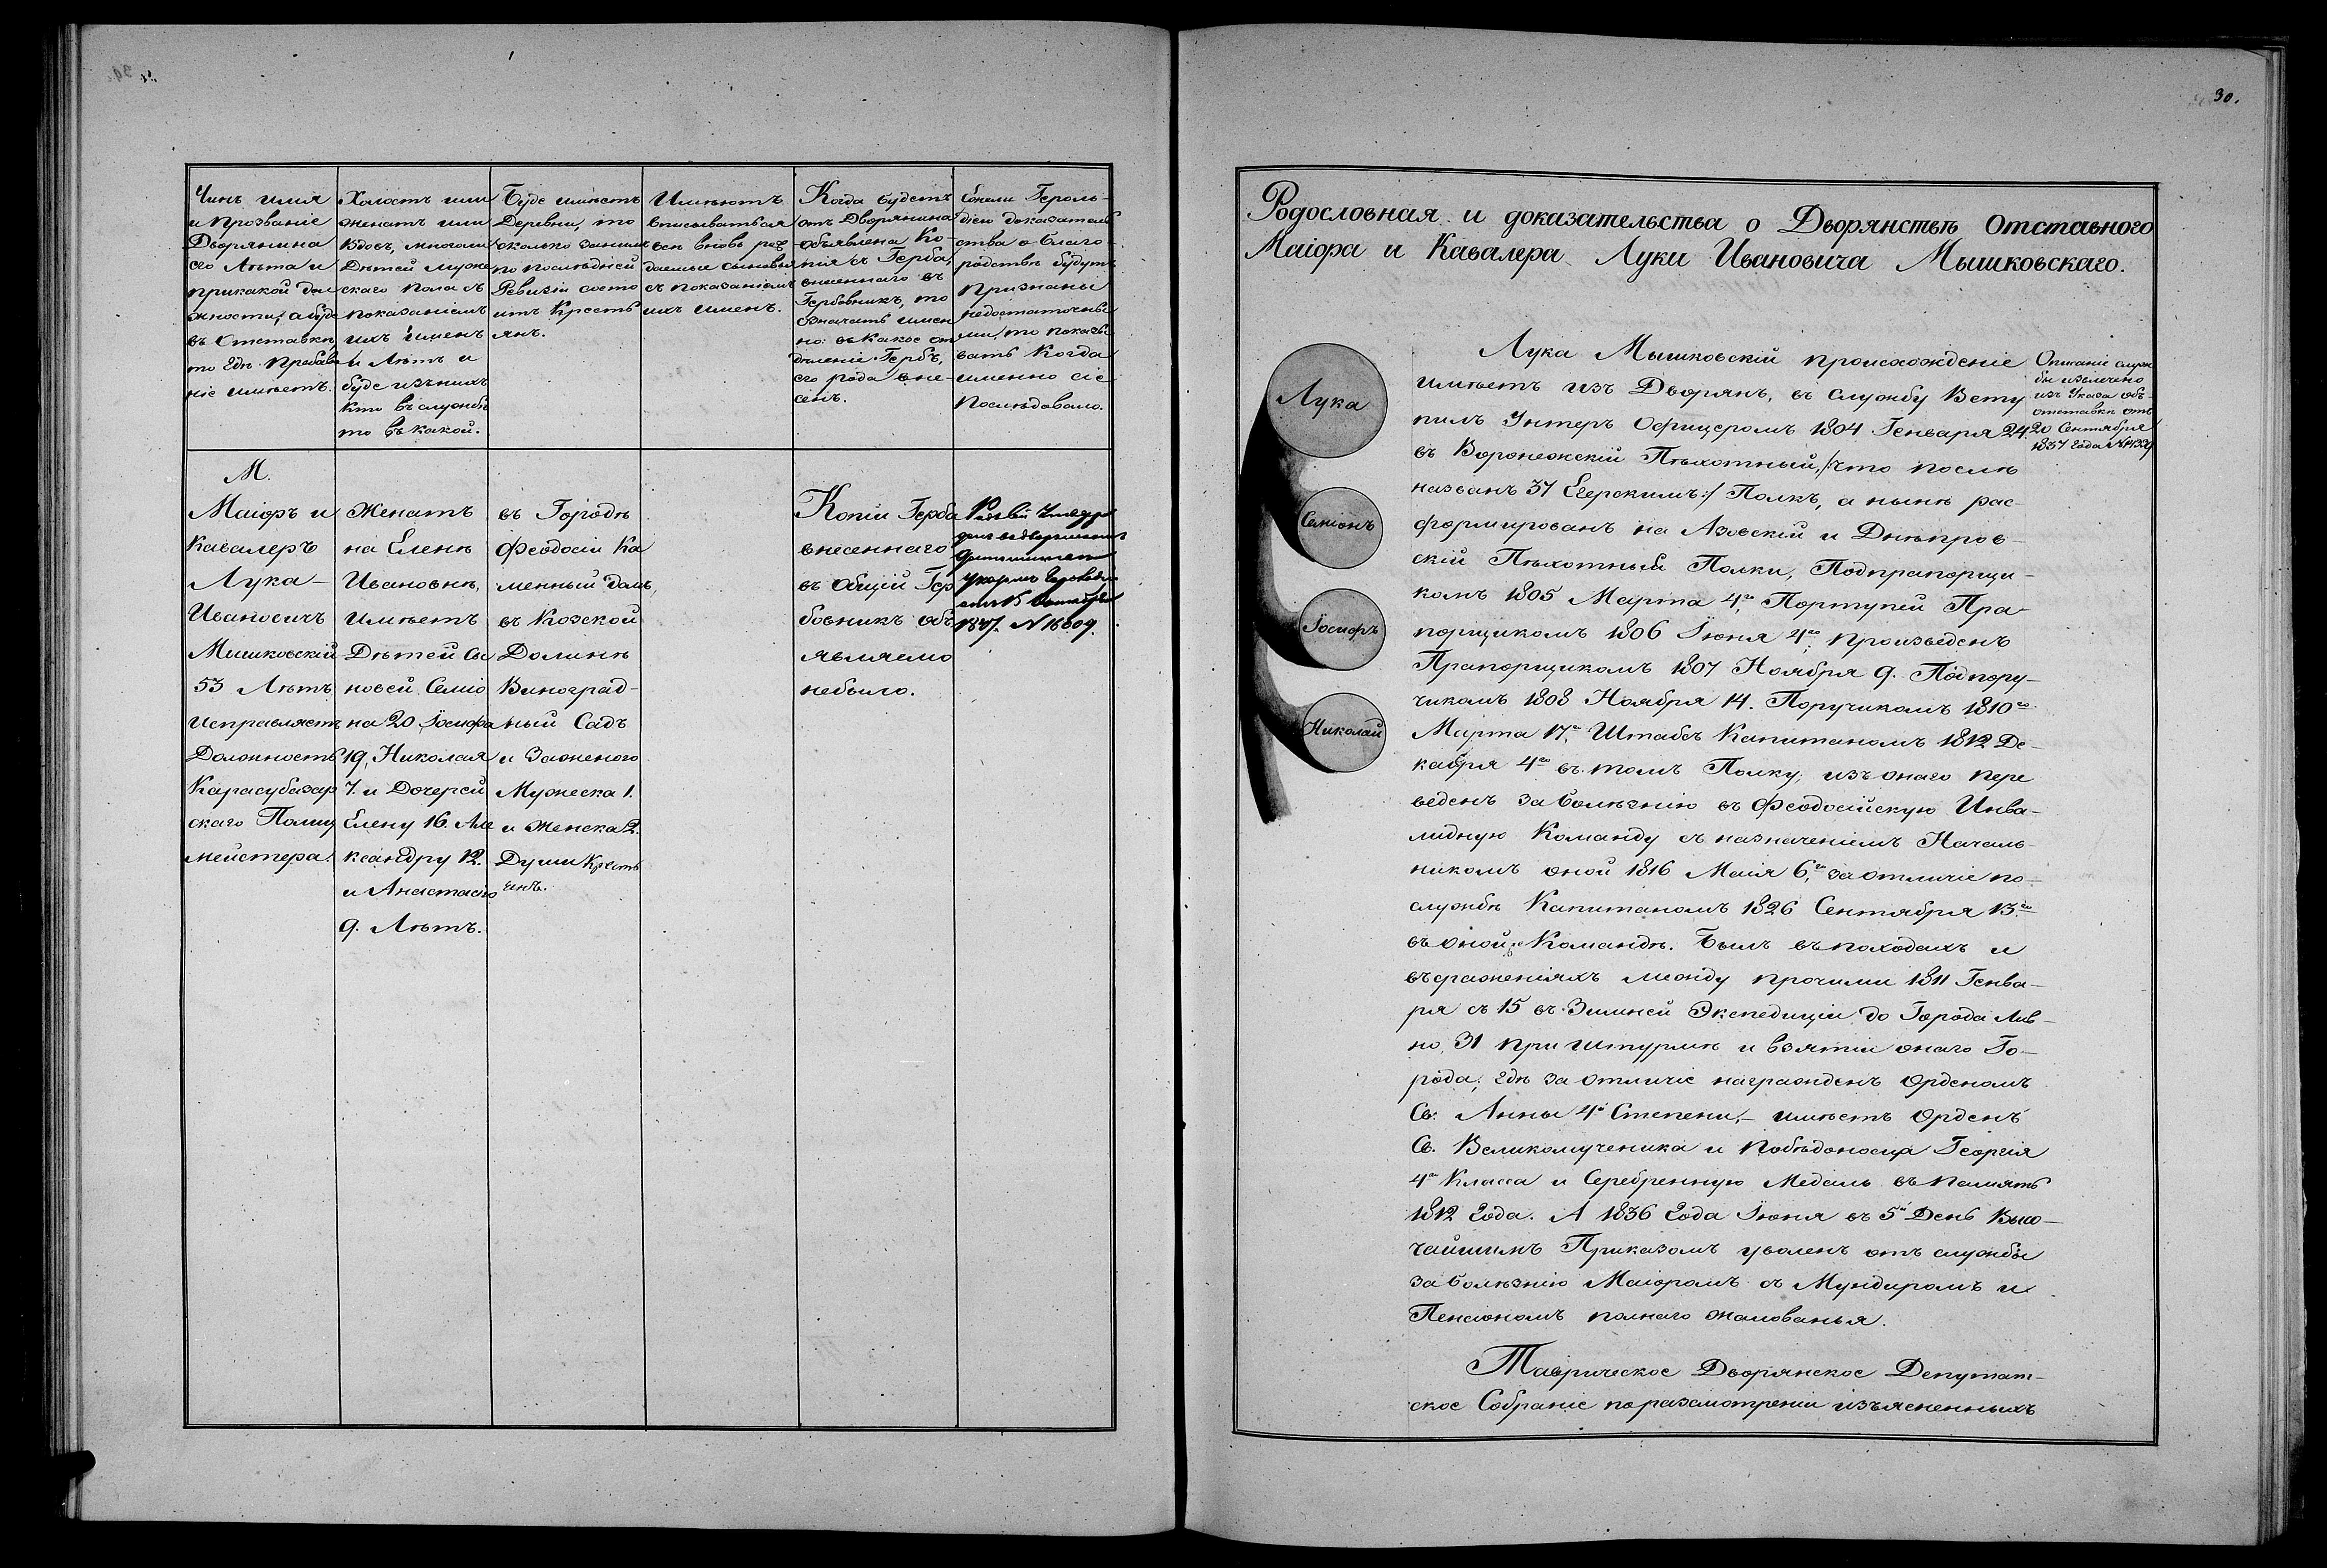 Чинъ имя
и прозваніе
Дворянина
его Лѣта и
при какой дол
жности, а буде
въ Отставки,
то гдѣ пребыва
ніе имѣетъ.
Холостъ или
женатъ или
вдовъ, многоли
Дѣтей муже
скаго пола съ
показаніемъ
ихъ именъ
и Лѣтъ и
буде изъ нихъ
кто въ службѣ
то въ какой.
Буде имѣетъ
Деревни, то
сколько за нимъ
по послѣдней
Ревизіи состо
итъ Кресть
янъ.
Имѣютъ
вписываться
всѣ вновь рож
даемые сыновья
съ показаніемъ
ихъ именъ.
Когда будетъ
отъ Дворянина
объявлена Ко-
пія съ Герба,
внесеннаго въ
Гербовникъ, то
означать имен
но: въ какое от
дѣленіе Гербъ,
его рода вне-
сенъ.
Ежели Героль-
діею доказатель
ства о благо-
родствѣ будутъ
признаны
недостаточны
ми, то показы
вать когда
именно сіе
послѣдовало.
М.
Маіоръ и
Кавалеръ
Лука
Ивановичъ
Мышковскій
53 Лѣтъ
исправляетъ
Должность
Карасубазар
скаго Полиц
мейстера.
Женатъ
на Еленѣ
Ивановнѣ,
имѣетъ
Дѣтей Сы
новей Семіо
на 20, Іосифа
19, Николая
7. и Дочерей
Елену 16. Але
ксандру 12.
и Анастасію
9. Лѣтъ.
въ Городѣ
Феодосіи Ка
менный домъ,
въ Козской
Долинѣ
Виноград-
ный Садъ
и За женою
Мужеска 1.
и Женска 2.
Души Кресть
янъ.
Копіи Герба
внесеннаго
въ Общій Гер
бовникъ объ
являемо
небыло.
отъ 15 Октября
1847. N 16609.
30.
Родословная и доказательства о Дворянствѣ Отставнаго
Маіора и Кавалера Луки Ивановича Мышковскаго.
Лука
Семіонъ
Іосифъ
Николай
Лука Мышковскій происхожденіе
имѣетъ изъ Дворянъ, въ службу Всту
пилъ Унтеръ Офицеромъ 1804 Генваря 24.
въ Воронежскій Пѣхотный, /:что послѣ
названъ 37 Егерскимъ:/ Полкъ, а нынѣ рас-
формированъ на Азовскій и Днѣпров-
скій Пѣхотный Полки, Подпрапорщи-
комъ 1805 Марта 4го, Портупей Пра-
порщикомъ 1806 Іюня 4го, произведенъ
Прапорщикомъ 1807 Ноября 9. Подпору-
чикомъ 1808 Ноября 14. Поручикомъ 1810го
Марта 17го, Штабсъ Капитаномъ 1812 Де-
кабря 4го въ томъ Полку; изъ онаго пере
веденъ за болѣзнію въ Феодосійскую Инва-
лидную Команду съ назначеніемъ Началь-
никомъ оной 1816 Маія 6го, за отличіе по-
службѣ Капитаномъ 1826 Сентября 13го
въ оной Командѣ. Былъ въ походахъ и
въ сраженіяхъ между прочими 1811 Генва-
ря съ 15 въ Зимней Экспедиціи до Города Лов-
но, 31 при штурмѣ и взятіи онаго Го-
рода; гдѣ за отличіе награжденъ Орденомъ
Св: Анны 4й Степени,- имѣетъ Орденъ
Св. Великомученика и Побѣдоносца Георгія
4го Класса и Серебренную Медаль въ память
1812 Года. А 1836 Года Іюня въ 5й День Высо-
чайшимъ Приказомъ уволенъ отъ службы
за болѣзнію Маіоромъ съ Мундиромъ и
Пенсіономъ полнаго жалованья.
Таврическое Дворянское Депутат-
ское Собраніе по разсмотреніи изъясненныхъ
Описаніе служ
бы извлечено
изъ Указа объ
отставкѣ отъ
20 Сентября
1837 Года N